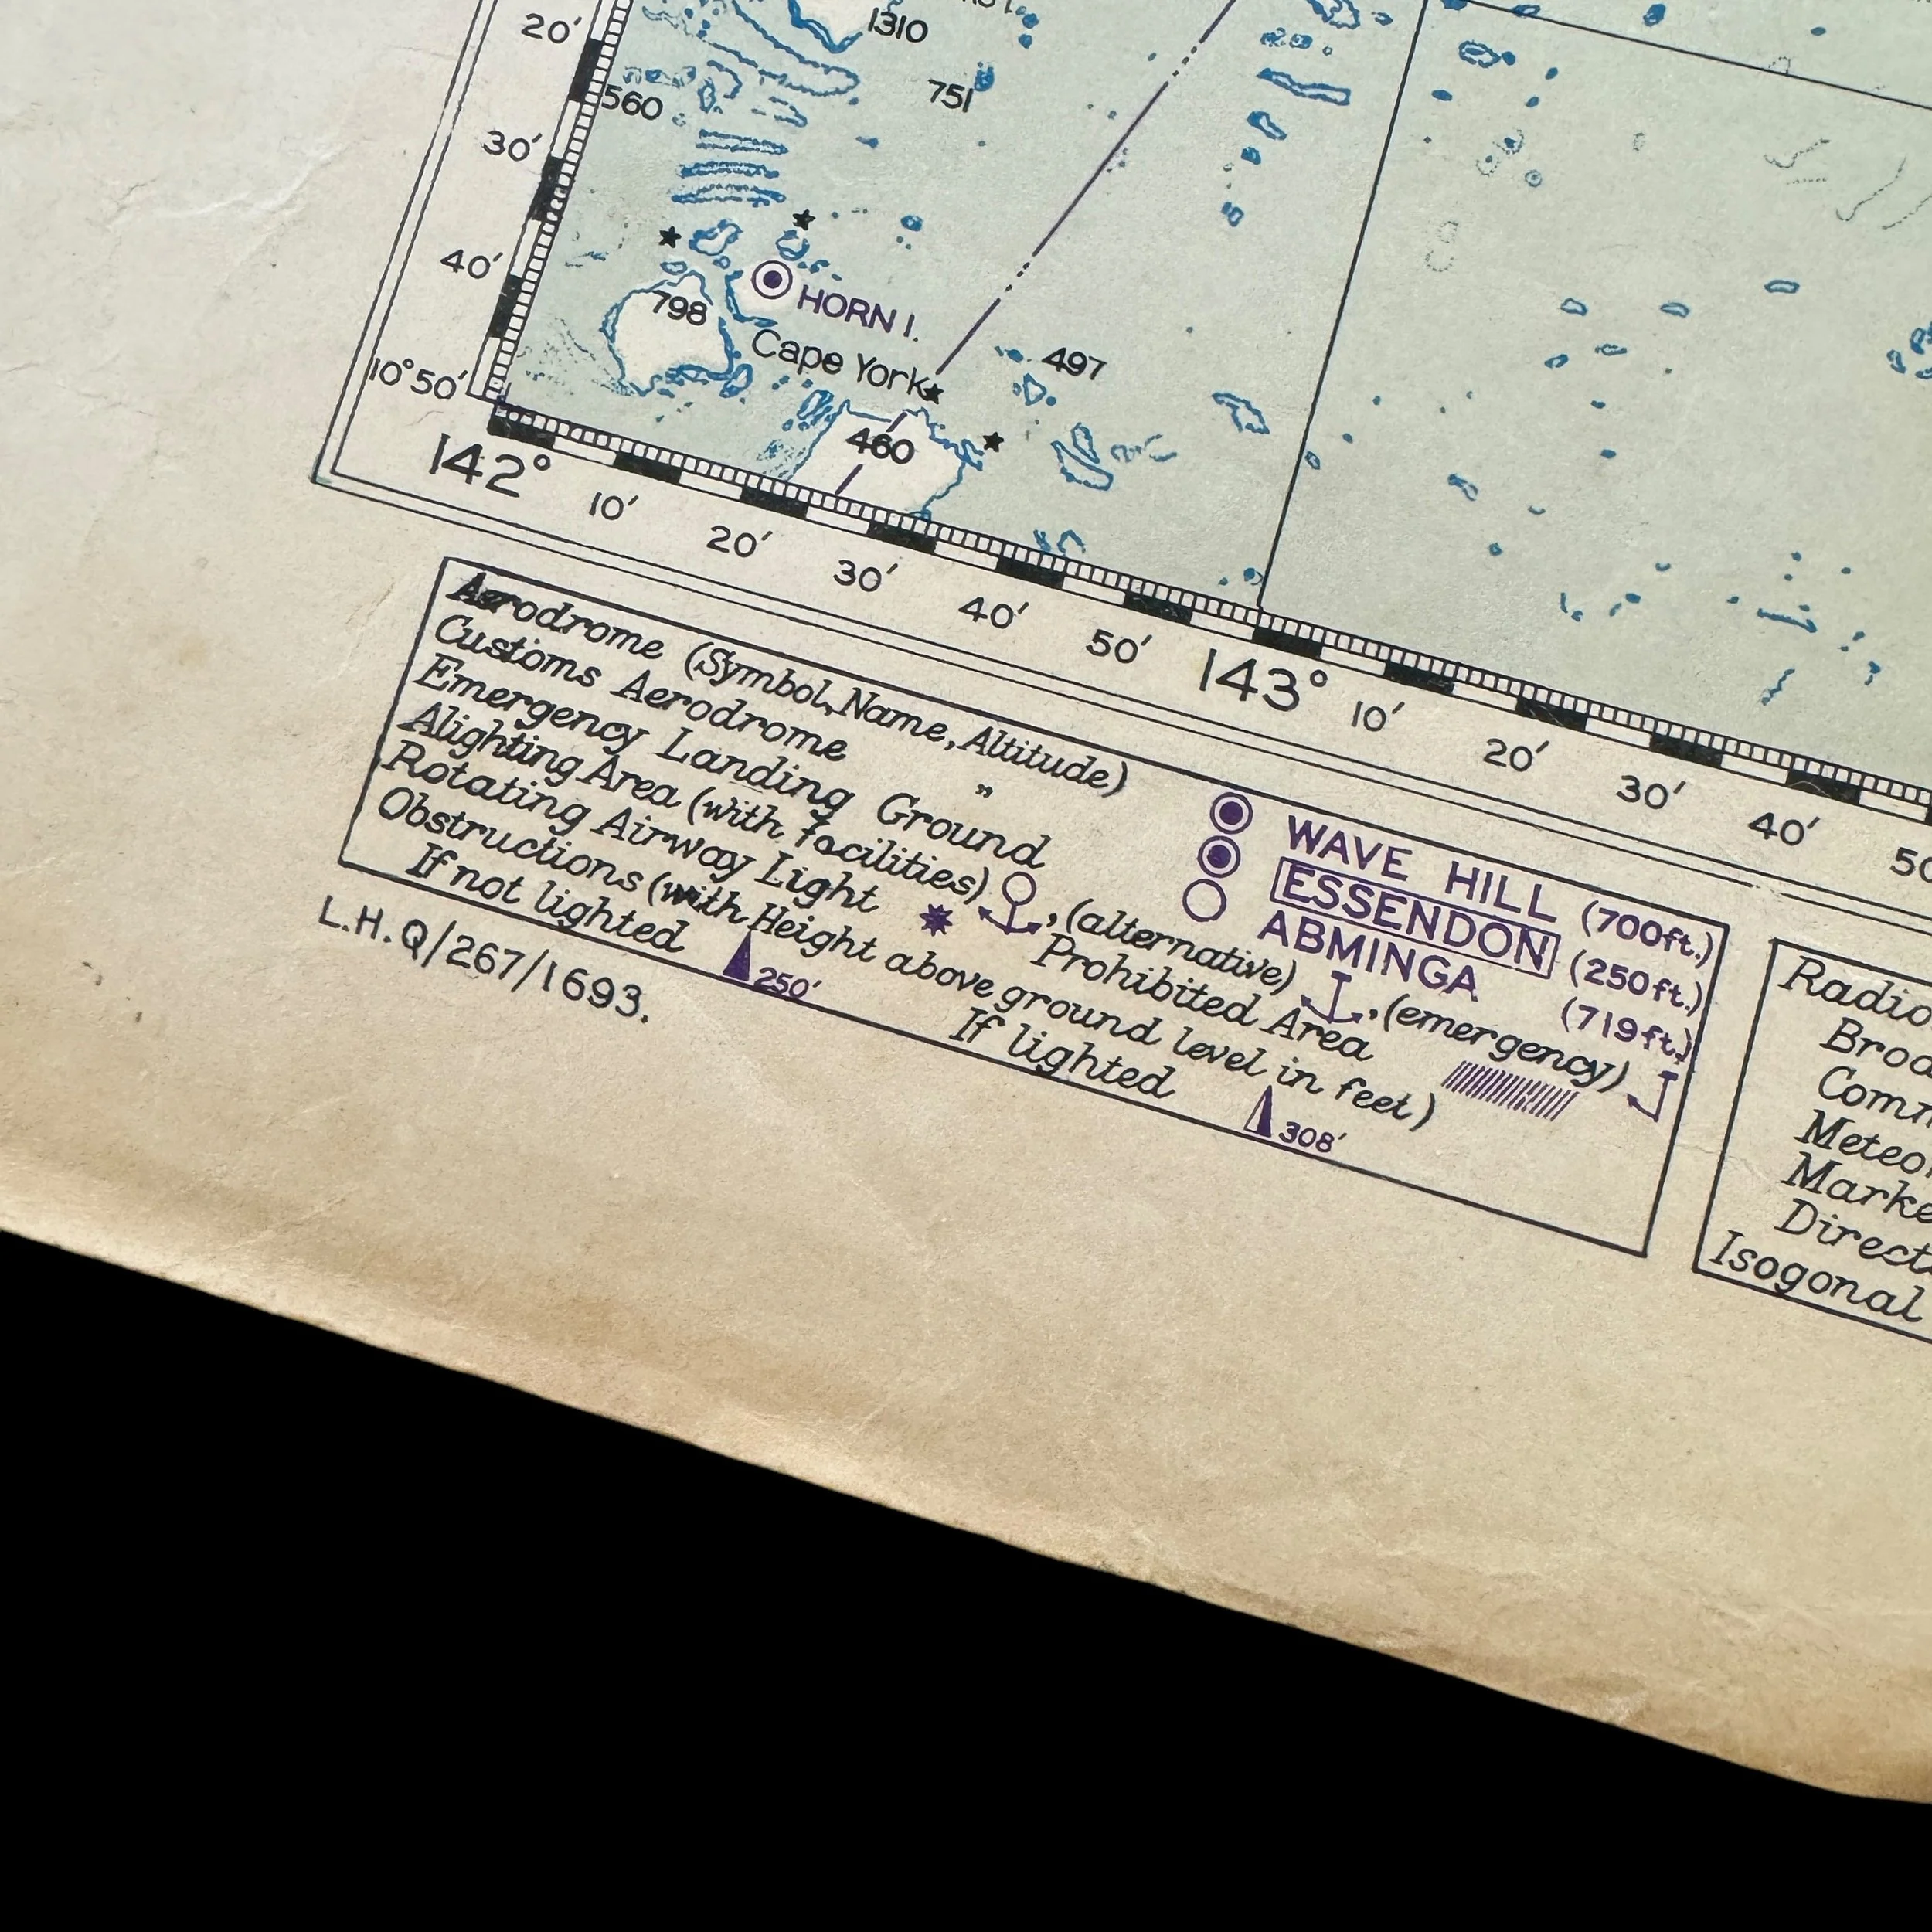 20'
1310
751
560
30'
40'
HORN I.
798
Cape York
497
10°50'
460
142°
10'
20'
30'
40'
50'
143°
10'
20'
30'
40'
Aerodrome (Symbol, Name, Altitude) WAVE HILL (700ft.)
Customs Aerodrome " ESSENDON (250ft.)
Emergency Landing Ground ABMINGA (719ft.)
Alighting Area (with facilities) , (alternative) , (emergency)
Rotating Airway Light Prohibited Area
Obstructions (with Height above ground level in feet)
If not lighted 250' If lighted 308'
L.H.Q/267/1693.
Radio
Isogonal